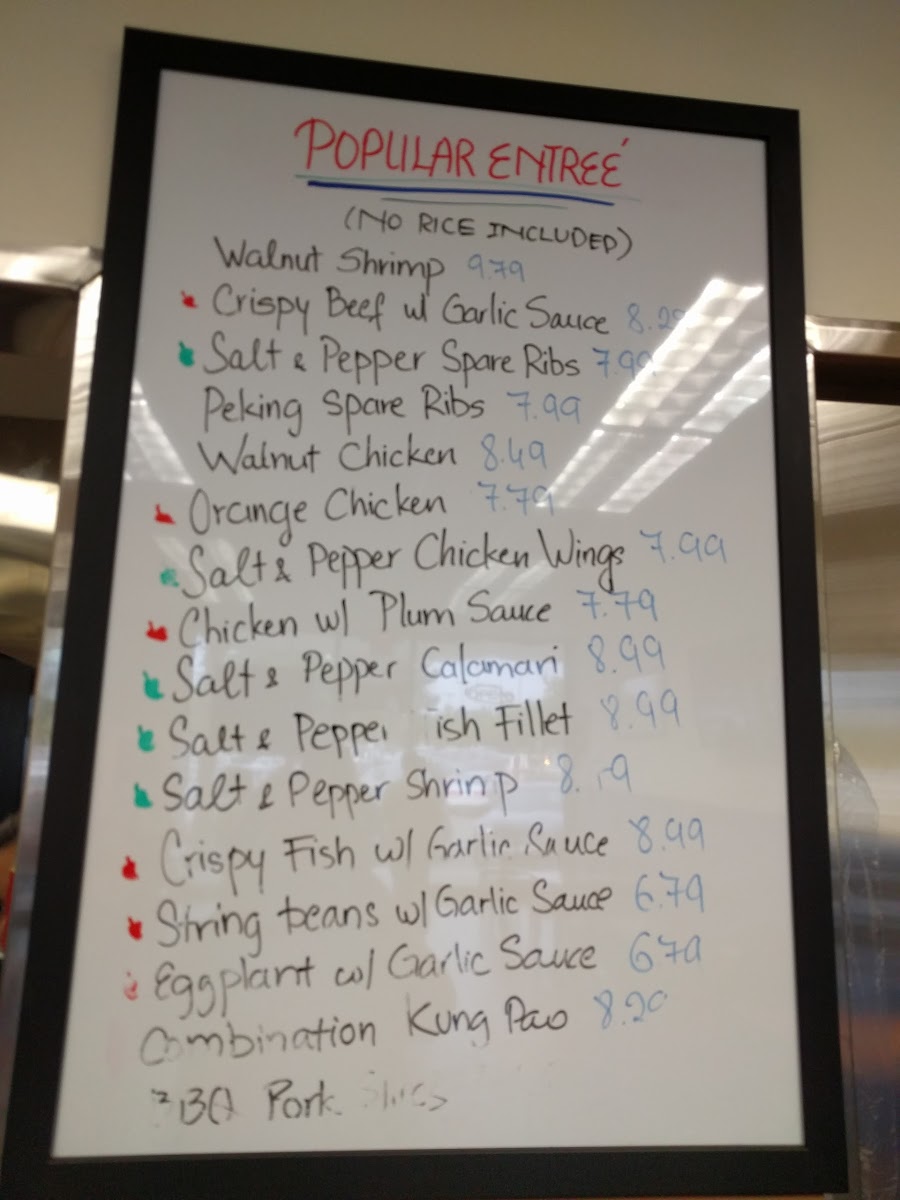 POPULAR ENTREÉ
(NO RICE INCLUDED)
Walnut Shrimp 9.79
Crispy Beef w/ Garlic Sauce 8.29
Salt & Pepper Spare Ribs 7.99
Peking Spare Ribs 7.99
Walnut Chicken 8.49
Orange Chicken 7.79
Salt & Pepper Chicken Wings 7.99
Chicken w/ Plum Sauce 7.79
Salt & Pepper Calamari 8.99
Salt & Pepper ish Fillet 8.99
Salt & Pepper Shrimp
Crispy Fish w/ Garlic Sauce 8.99
String beans w/ Garlic Sauce 6.79
Eggplant w/ Garlic Sauce 6.79
Combination Kung Pao 8.29
BBQ Pork